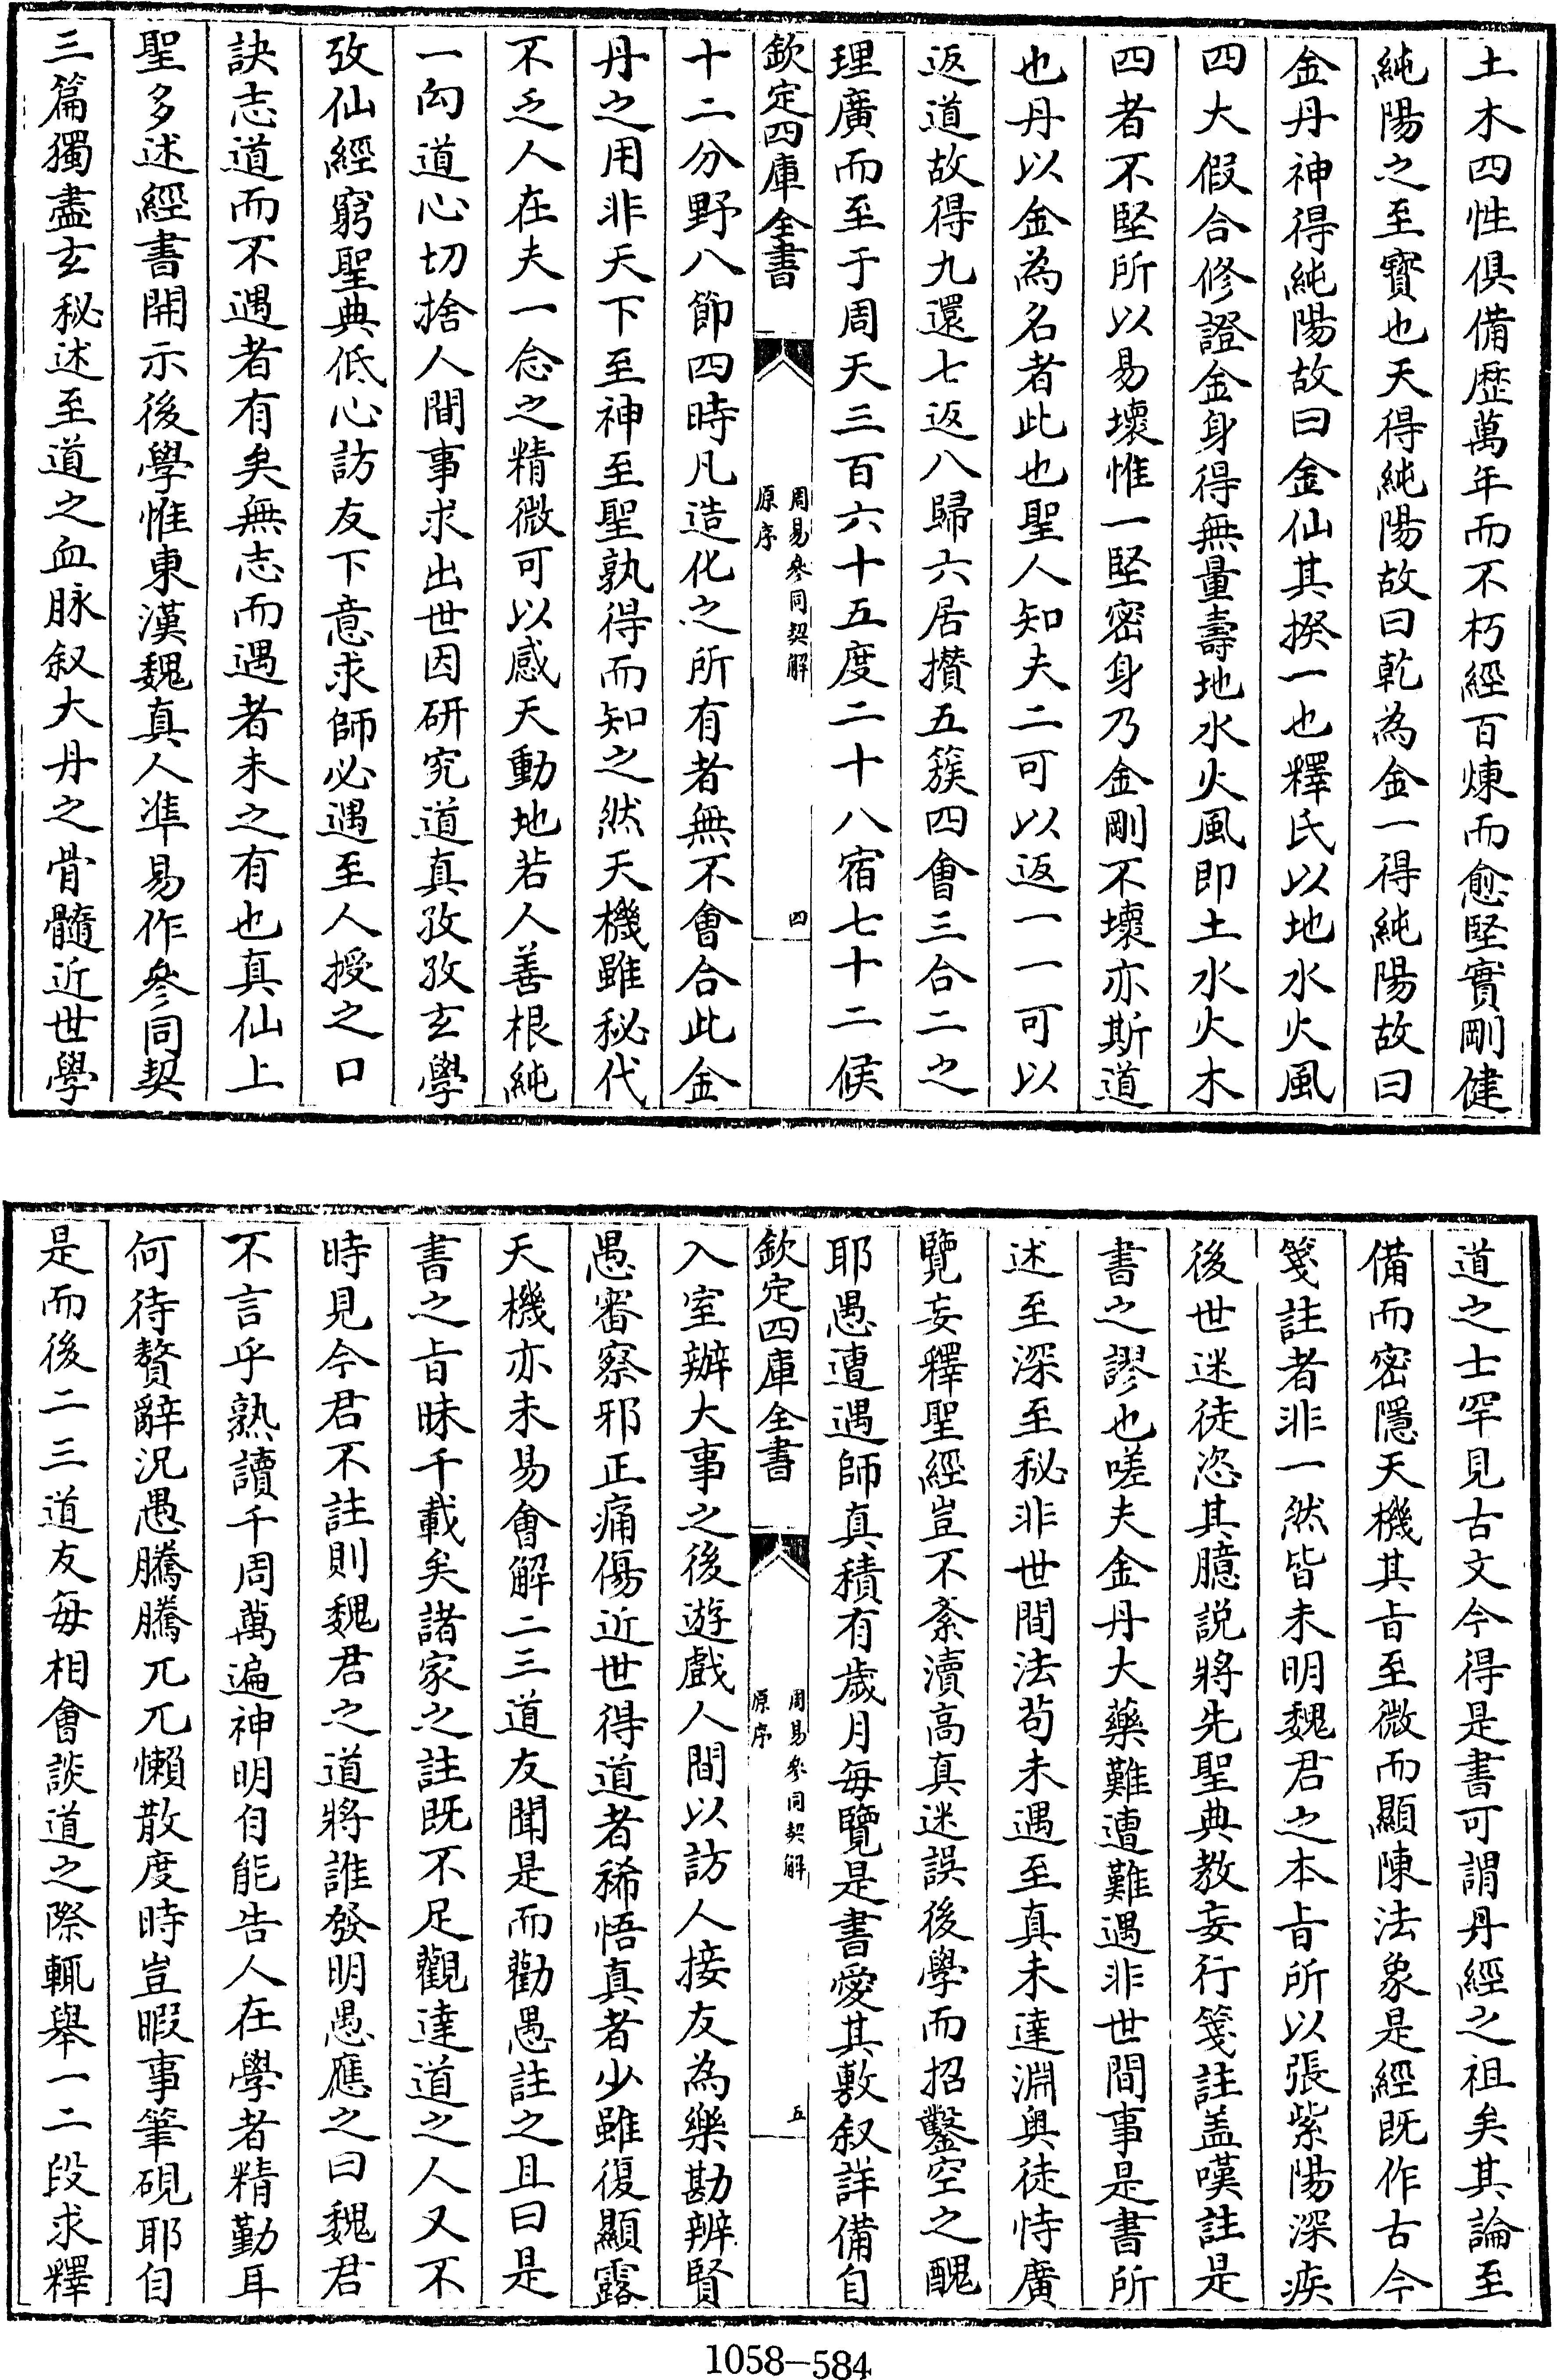 土木四性俱備歴萬年而不朽經百煉而愈堅實剛健
純陽之至寳也天得純陽故曰乾為金一得純陽故曰
金丹神得純陽故曰金仙其揆一也釋氏以地水火風
四大假合修證金身得無量壽地水火風即土水火木
四者不堅所以易壞惟一堅密身乃金剛不壞亦斯道
也丹以金為名者此也聖人知夫二可以返一一可以
返道故得九還七返八歸六居攢五簇四會三合二之
理廣而至于周天三百六十五度二十八宿七十二候
欽定四庫全書
周易參同契解
原序
四
十二分野八節四時凡造化之所有者無不會合此金
丹之用非天下至神至聖孰得而知之然天機雖秘代
不乏人在夫一念之精微可以感天動地若人善根純
一向道心切捨人間事求出世因研究道真孜孜玄學
攷仙經窮聖典低心訪友下意求師必遇至人授之口
訣志道而不遇者有矣無志而遇者未之有也真仙上
聖多述經書開示後學惟東漢魏真人凖易作參同契
三篇獨盡玄秘述至道之血脉叙大丹之骨髓近世學
道之士罕見古文今得是書可謂丹經之祖矣其論至
備而密隱天機其㫖至微而顯陳法象是經既作古今
箋註者非一然皆未明魏君之本㫖所以張紫陽深疾
後世迷徒恣其臆説將先聖典教妄行箋註盖嘆註是
書之謬也嗟夫金丹大藥難遭難遇非世間事是書所
述至深至秘非世間法茍未遇至真未達淵奥徒恃廣
覽妄釋聖經豈不紊瀆高真迷誤後學而招鑿空之醜
耶愚遭遇師真積有歲月每覽是書愛其敷叙詳備自
欽定四庫全書
周易參同契解
原序
五
入室辦大事之後遊戲人間以訪人接友為樂勘辨賢
愚審察邪正痛傷近世得道者稀悟真者少雖復顯露
天機亦未易會解二三道友聞是而勸愚註之且曰是
書之㫖昧千載矣諸家之註既不足觀達道之人又不
時見今君不註則魏君之道將誰發明愚應之曰魏君
不言乎熟讀千周萬遍神明自能告人在學者精勤耳
何待贅辭況愚騰騰兀兀懶散度時豈暇事筆硯耶自
是而後二三道友每相會談道之際輒舉一二段求釋
1058-584